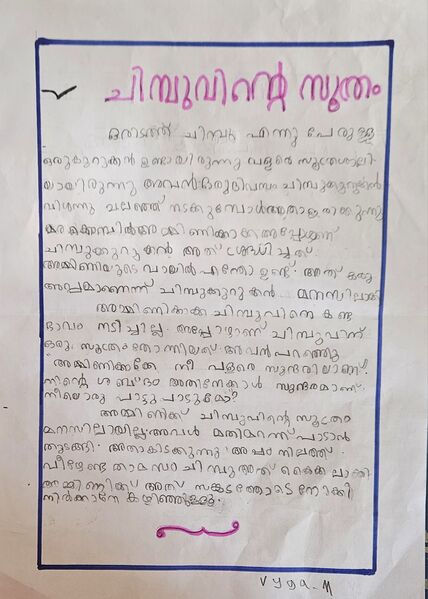 ചിമ്പുവിന്റെ സൂത്രം
ഒരിടത്ത് ചിമ്പു എന്നു പേരുള്ള
ഒരുകുറുക്കൻ ഉണ്ടായിരുന്നു വളരെ സൂത്രശാലി
യായിരുന്നു അവൻ ഒരുദിവസം ചിമ്പുക്കുറുക്കൻ
വിശന്നു വലഞ്ഞ് നടക്കുമ്പോൾ
മരക്കൊമ്പിൽ അമ്മിണിക്കാക്ക
ചിമ്പുക്കുറുക്കൻ അത് ശ്രദ്ധിച്ചത്.
അമ്മിണിയുടെ വായിൽ എന്തോ ഉണ്ട്. അത് ഒരു
അപ്പമാണെന്ന് ചിമ്പുക്കുറുക്കൻ മനസ്സിലാക്കി
അമ്മിണിക്കാക്ക ചിമ്പുവിനെ കണ്ട
ഭാവം നടിച്ചില്ല. അപ്പോഴാണ് ചിമ്പുവിന്
ഒരു സൂത്രം തോന്നിയത് അവൻ പറഞ്ഞു
അമ്മിണിക്കാക്കേ നീ വളരെ സുന്ദരിയാണ്.
നിന്റെ ശബ്ദം അതിനേക്കാൾ സുന്ദരമാണ്.
നീയൊരു പാട്ടു പാടുമോ?
അമ്മിണിക്ക് ചിമ്പുവിന്റെ സൂത്രം
മനസിലായില്ല അവൾ മതിമറന്ന് പാടാൻ
തുടങ്ങി. അതാകിടക്കുന്നു അപ്പം നിലത്ത്.
വീഴേണ്ട താമസം ചിമ്പു അത് കൈക്കലാക്കി
അമ്മിണിക്ക് അത് സങ്കടത്തോടെ നോക്കി
നിൽക്കാനേ കഴിഞ്ഞുള്ളൂ.
Vyga. M